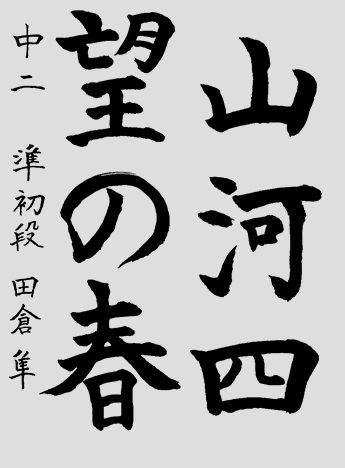 山河四
望の春
中二 準初段 田倉隼